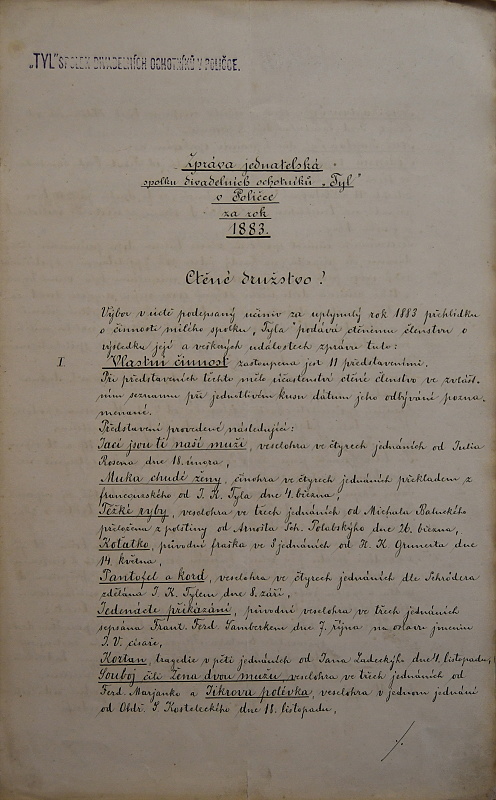 „TYL" SPOLEK DIVADELNÍCH OCHOTNÍKŮ V POLIČCE.
Zpráva jednatelská
spolku divadelních ochotníků „Tyl"
v Poličce
za rok
1883.
Ctěné družstvo!
Výbor v úctě podepsaný učiniv za uplynulý rok 1883 přehlídku
o činnosti milého spolku „Tyla" podává ctěnému členstvu o
výsledku její a veškerých událostech zprávu tuto:
I. Vlastní činnost zastoupena jest 11 představeními.
Při představeních těchto mělo účastenství ctěné členstvo ve zvlášt-
ním seznamu při jednotlivém kusu dátum jeho odbývání pozna-
menané.
Představení provedena následující:
Jací jsou ti naši muži, veselohra ve čtyrech jednáních od Julia
Rosena dne 18. února,
Muka chudé ženy, činohra ve čtyrech jednáních překladem z
francouzského od J. K. Tyla dne 4. března,
Těžké ryby, veselohra ve třech jednáních od Michala Baluckého
přeložena z polštiny od Arnošta Sch. Polabského dne 26. března,
Koťátko, původní fraška ve 3 jednáních od H. K. Grunerta dne
14. května,
Pantofel a kord, veselohra ve čtyrech jednáních dle Schrödera
zdělána J. K. Tylem dne 8. září,
Jedenácté přikázání, původní veselohra ve třech jednáních
sepsána Frant. Ferd. Šamberkem dne 7. října na oslavu jmenin
J. V. císaře,
tragedie v pěti jednáních od Jana Ladeckýho dne 4. listopadu,
Souboj čili Žena dvou mužů, veselohra ve třech jednáních od
Ferd. a Jíkrova polévka, veselohra v jednom jednání
od Obdř. S. Kosteleckého dne 18. listopadu,
./.